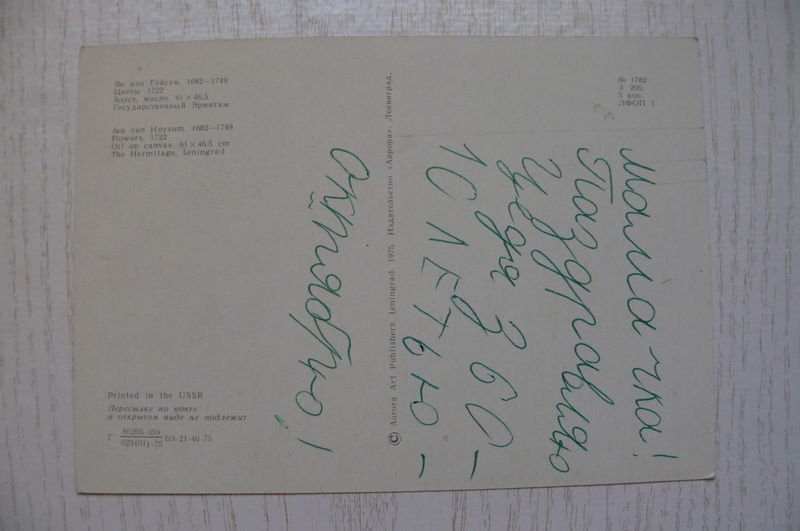 Ян ван Гейсум. 1682—1749
Цветы. 1722
Холст, масло. 61×46,5
Государственный Эрмитаж
Jan van Huysum. 1682—1749
Flowers. 1722
Oil on canvas. 61×46,5 cm
The Hermitage, Leningrad
№ 1782
3 200.
3 коп.
ЛФОП 1
мамачка!
Паздравляю
з 60 -
ЛЕТЬЮ -
© Aurora Art Publishers. Leningrad. 1975. Издательство «Аврора». Ленинград.
Printed in the USSR
Пересылке по почте
в открытом виде не подлежит
Г 80205-359
023(01)-75 БЗ-21-40-75